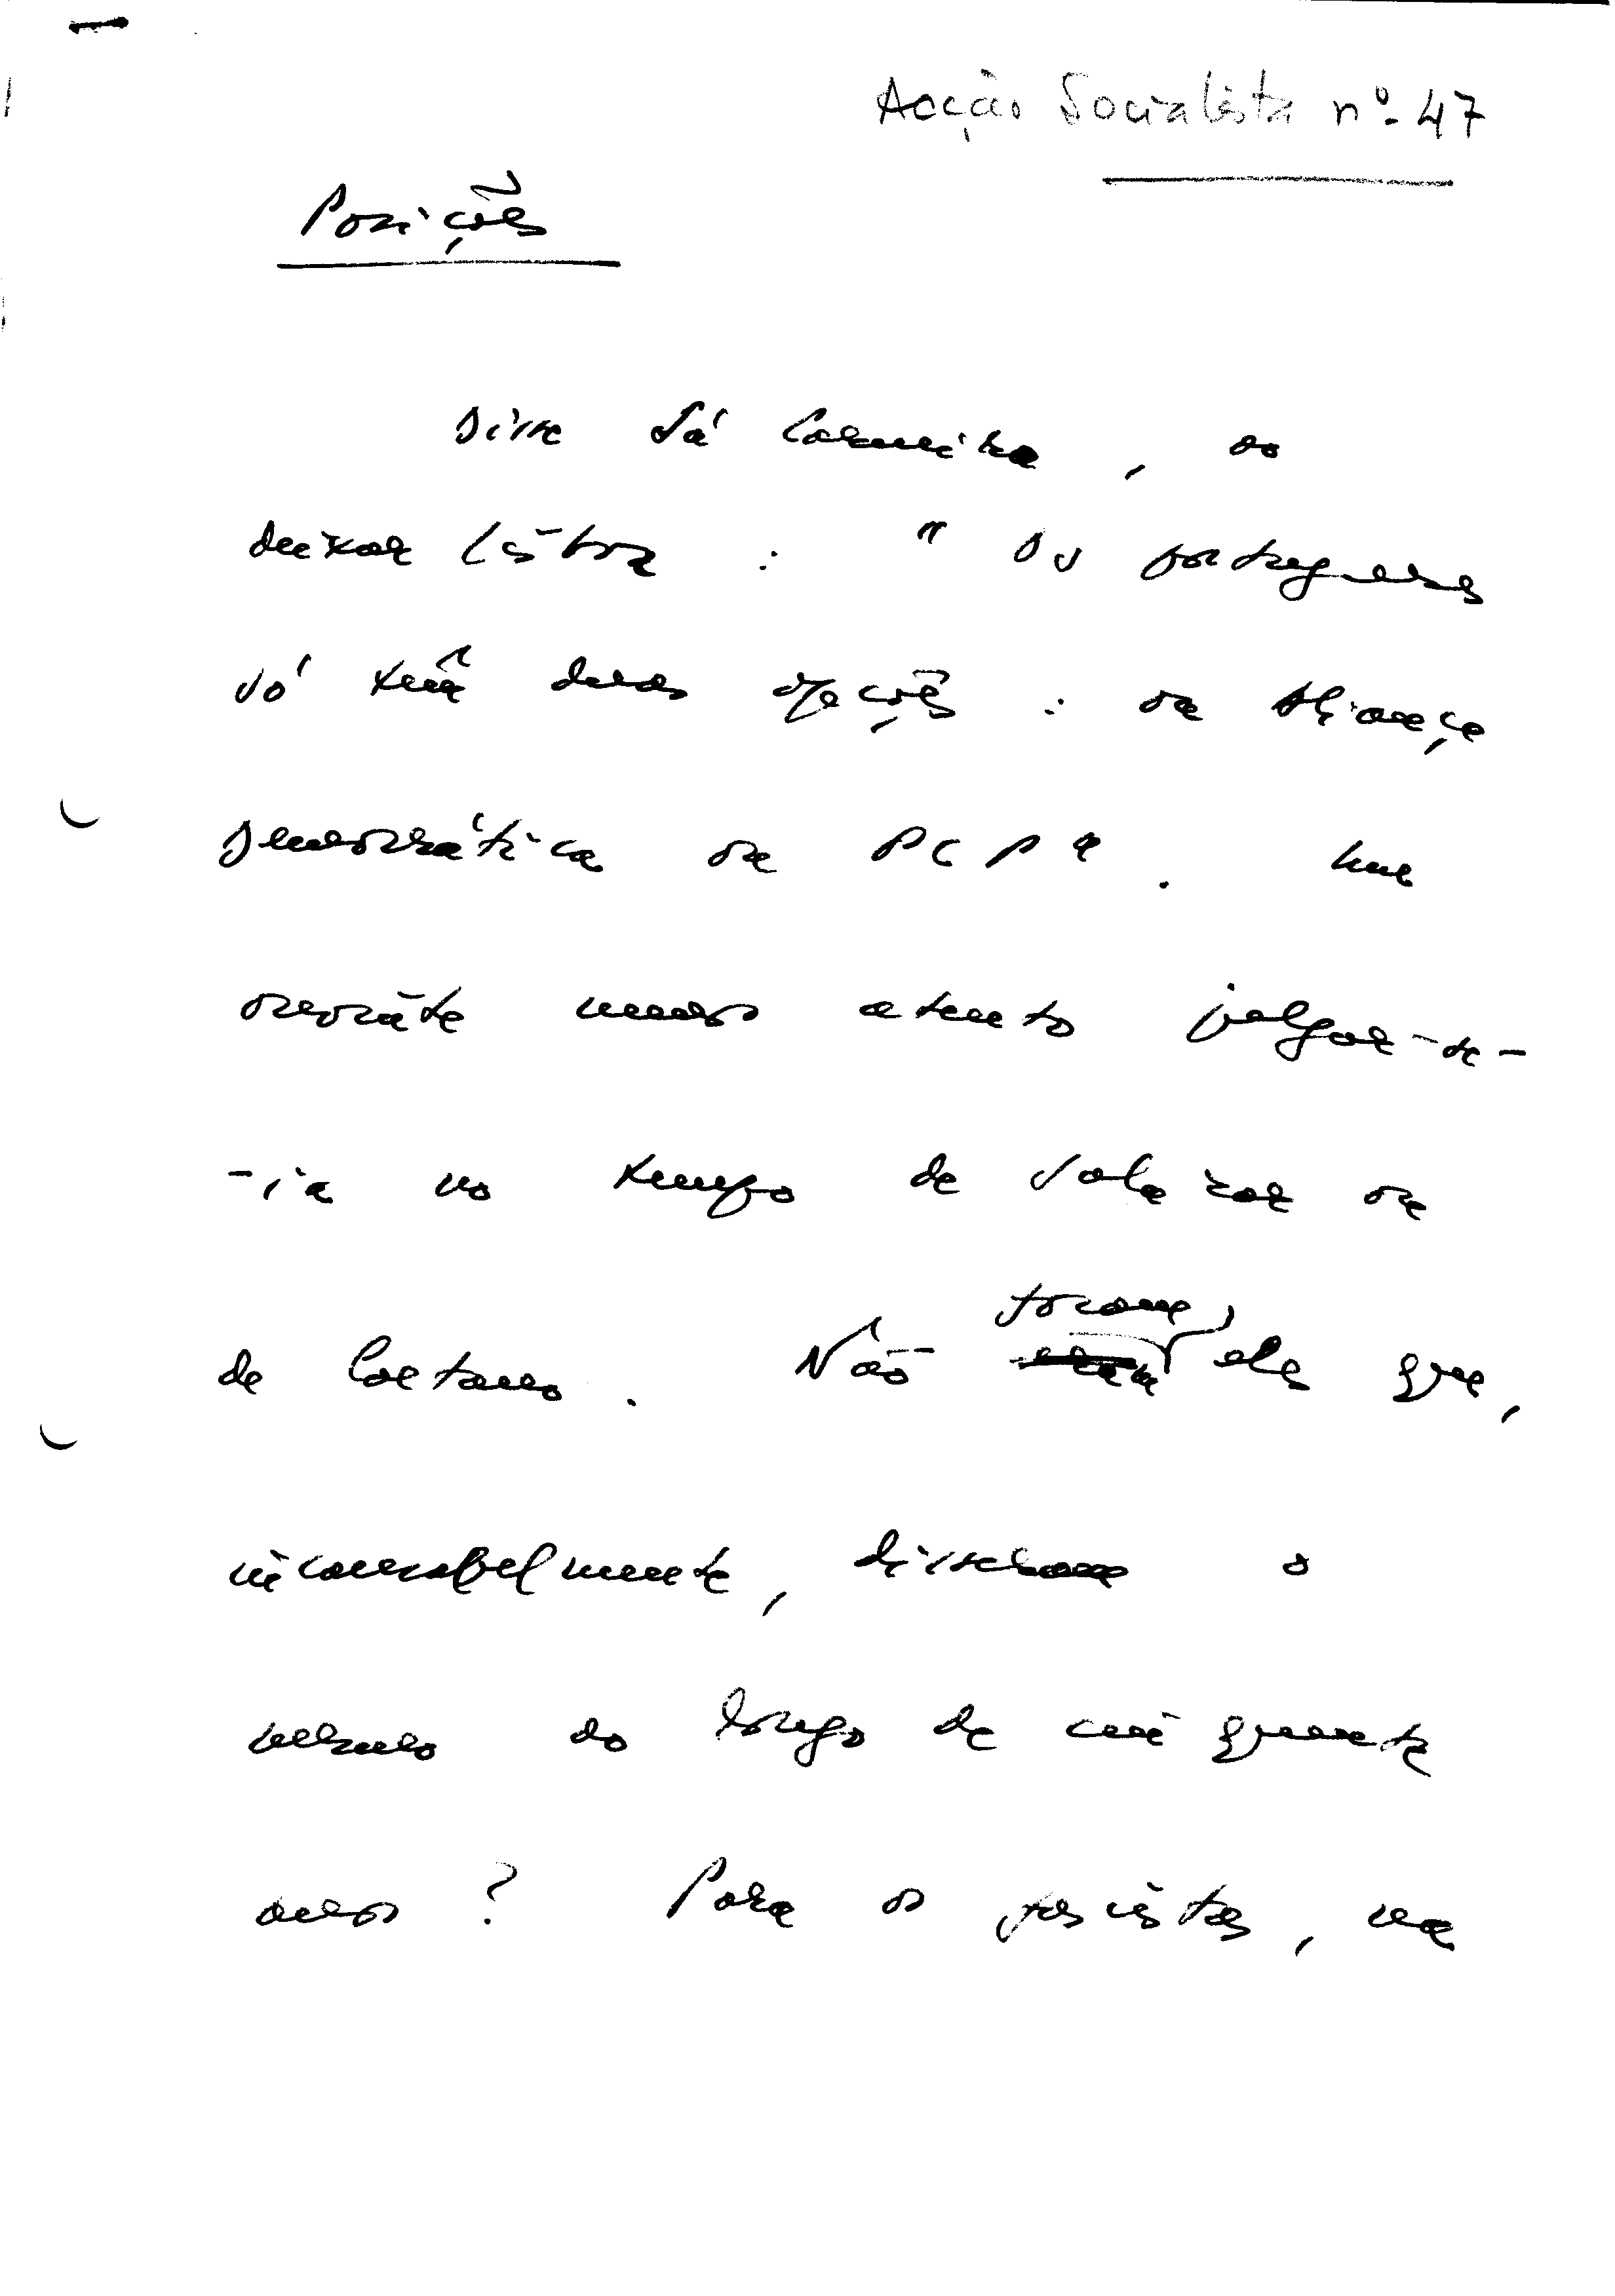 Acção Socialista nº 47
Posições
Disse Sá Carneiro, ao
deixar Lisboa : " Os portugueses
só têm duas opções : ou Aliança
Democrática ou PCP". Um
ouvinte menos atento julgar-se-
-ia no tempo de Salazar ou
foram,
de Caetano. Não eram eles que,
incansavelmente, disseram o
mesmo ao longo de cinquenta
anos ? Para os fascistas, na